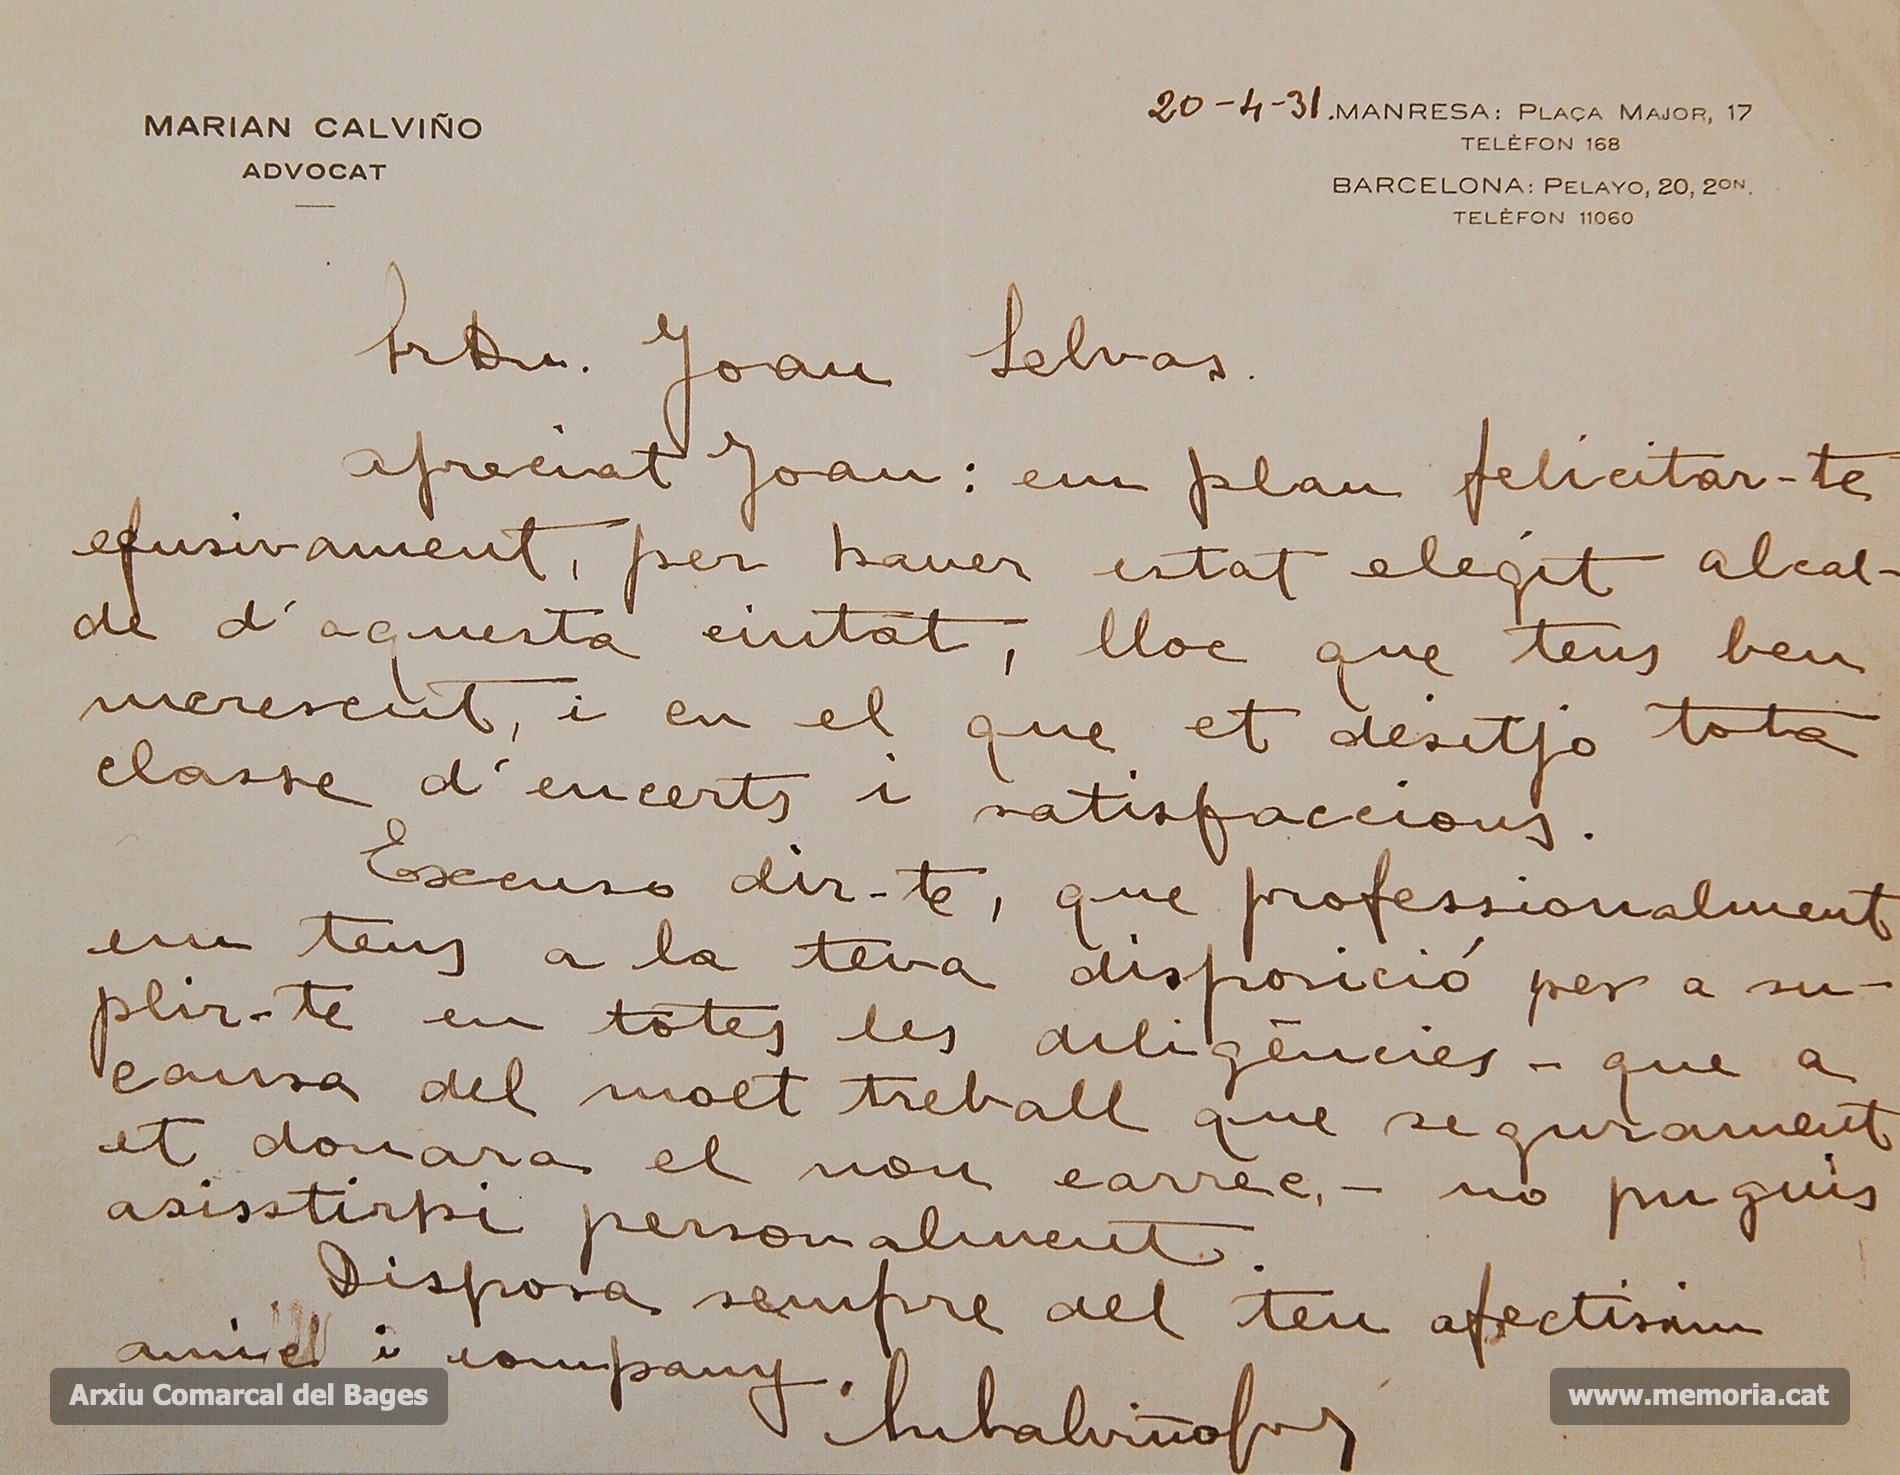 MARIAN CALVIÑO
ADVOCAT
20-4-31.
MANRESA: PLAÇA MAJOR, 17
TELÈFON 168
BARCELONA: PELAYO, 20, 2ON.
TELÈFON 11060
Sr Dn. Joan Selvas.
apreciat Joan: em plau felicitar-te
efusivament, per haver estat elegit alcal-
de d'aquesta ciutat, lloc que tens ben
merescut, i en el que et desitjo tota
classe d'encerts i satisfaccions.
Excuso dir-te, que professionalment
em tens a la teva disposició per a su-
plir-te en totes les diligències - que a
causa del molt treball que segurament
et donara el nou carrec, - no puguis
asisstirhi personalment.
Disposa sempre del teu afectisim
amic i company.
Arxiu Comarcal del Bages
www.memoria.cat